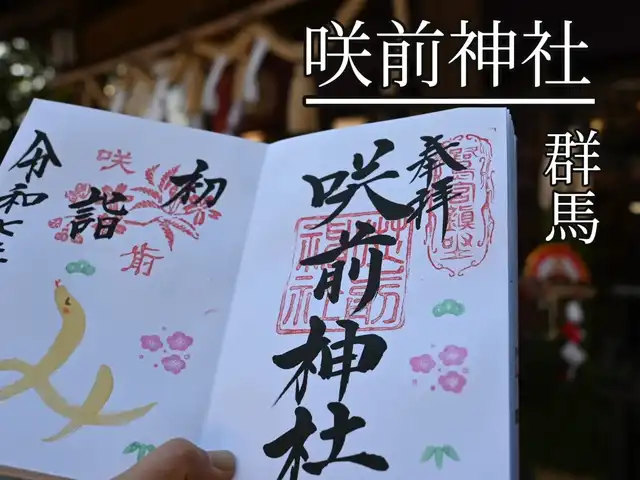 咲前神社
群馬
奉拝
咲前神社
初詣
令和七
咲
前